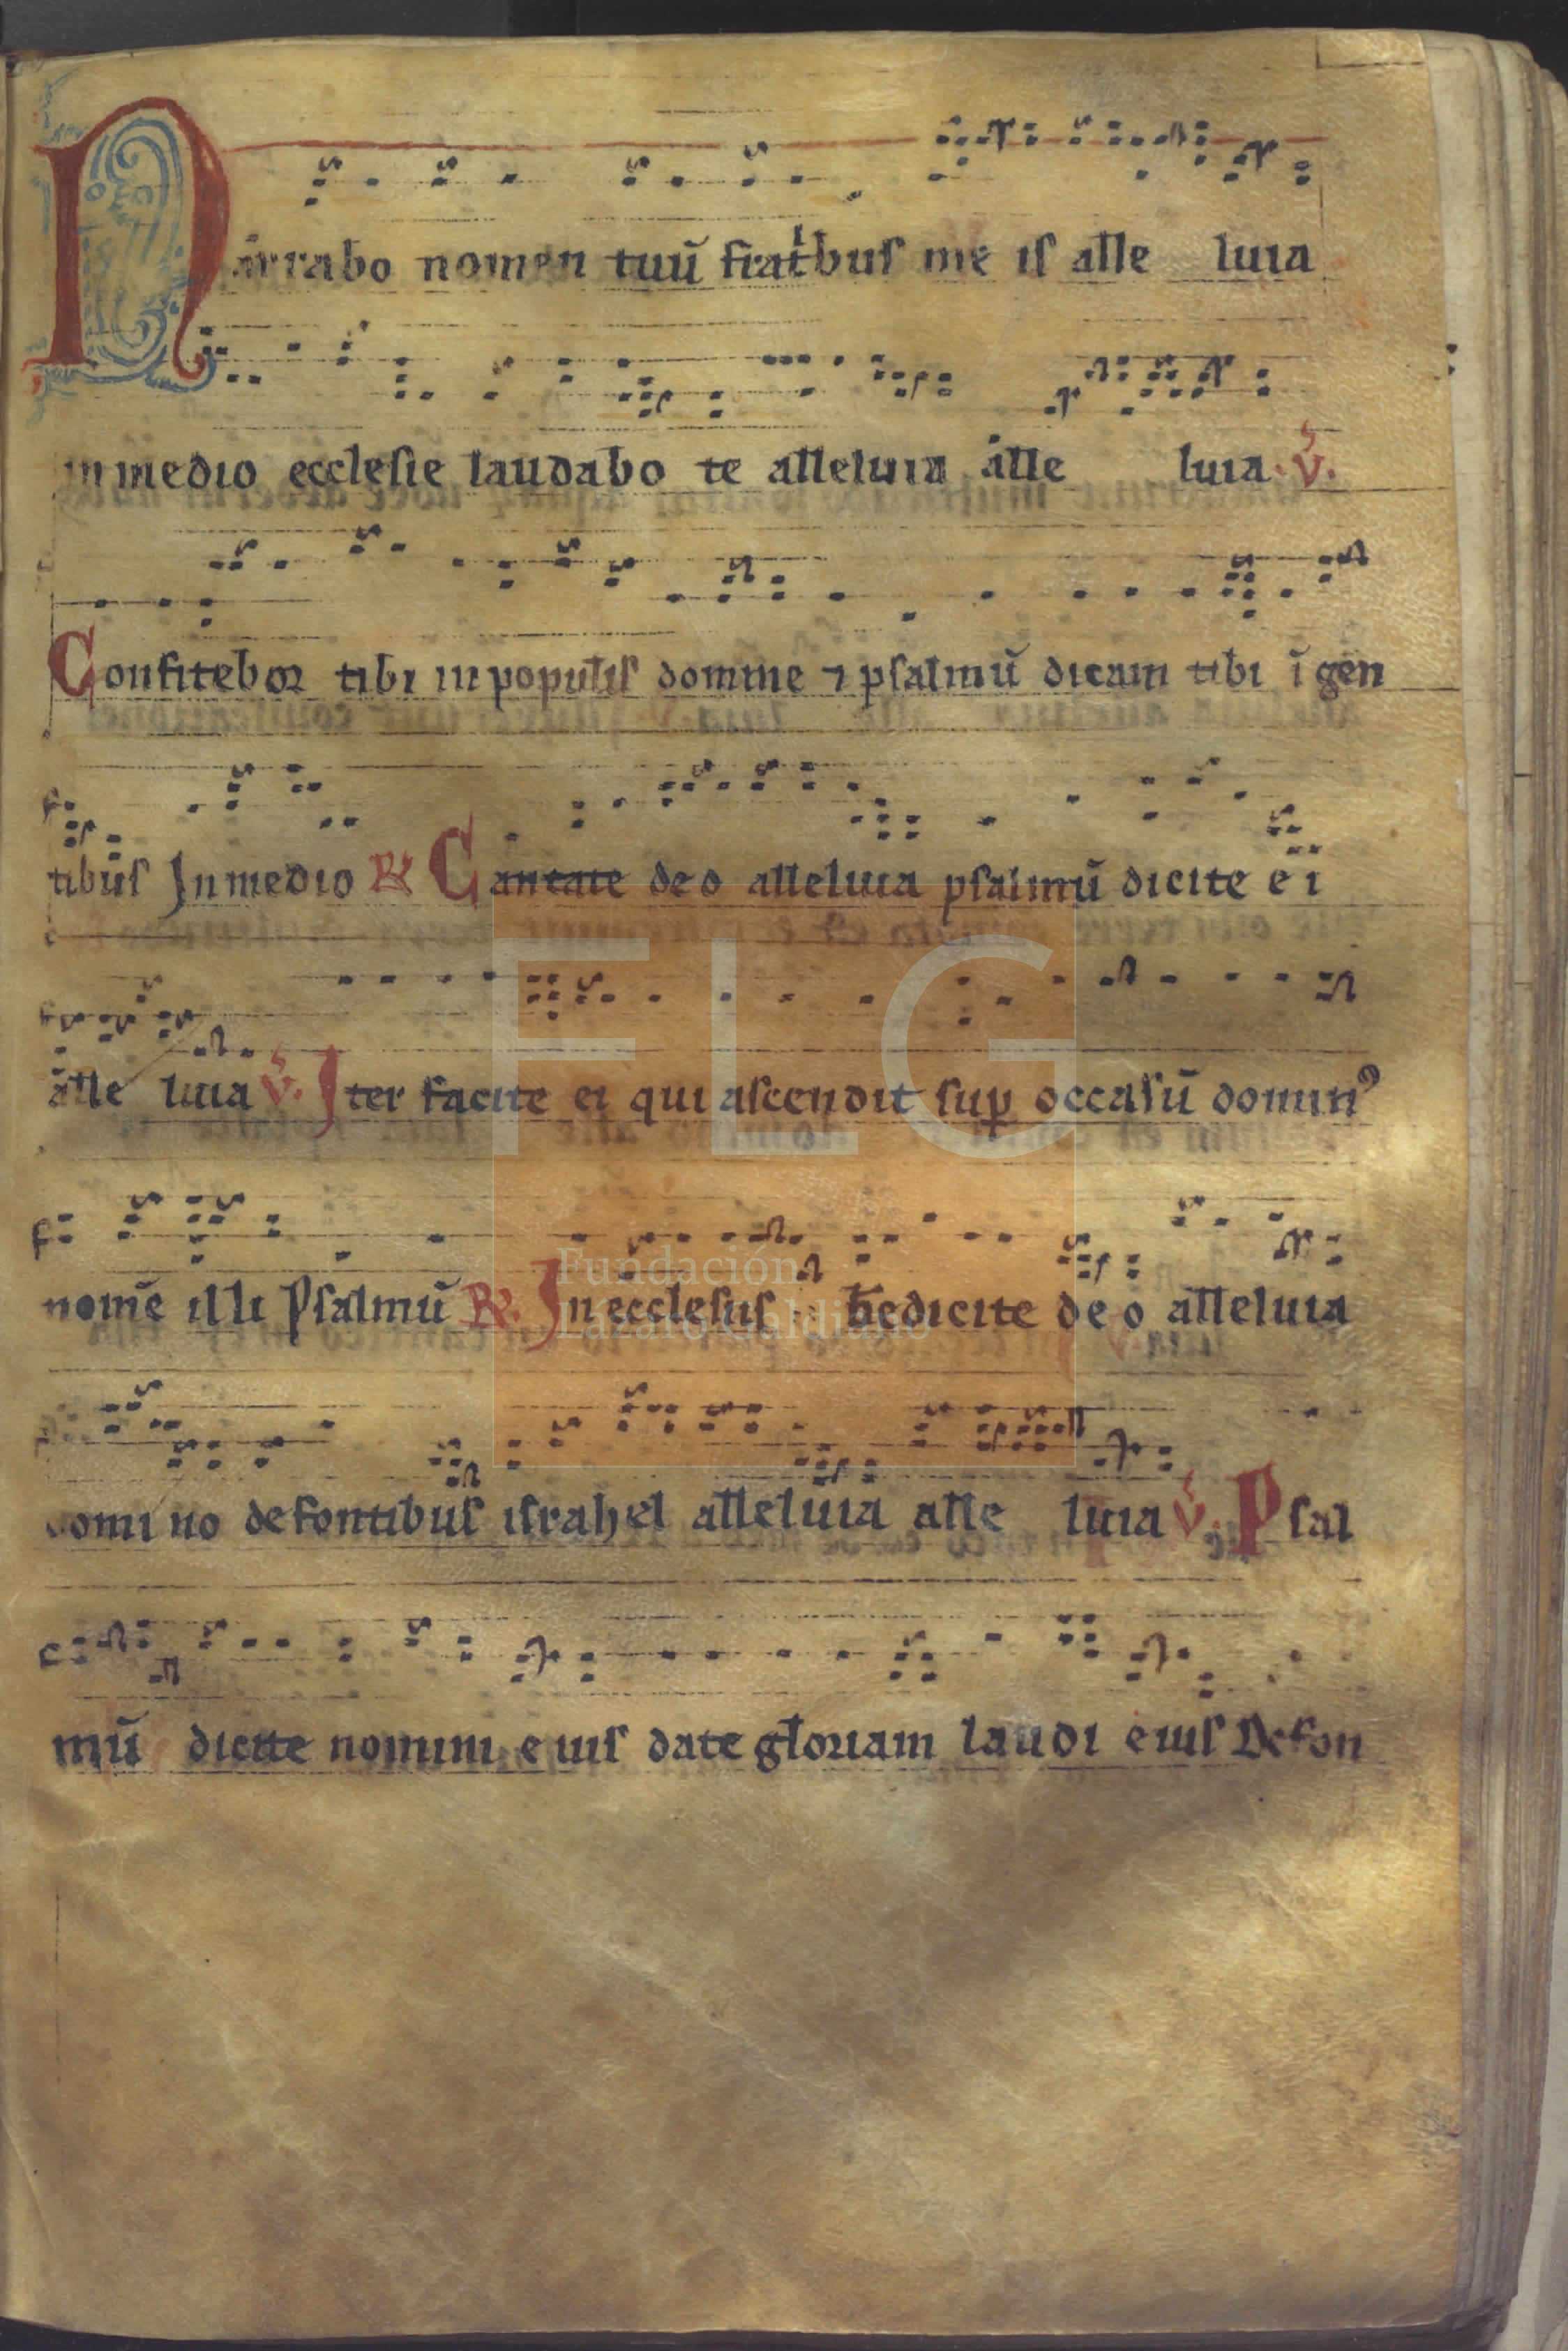 Narrabo nomen tuū fratbus me is alle luia
in medio ecclesie laudabo te alleluia alle luia V.
Confitebor tibi in populis domine ⁊ psalmū dicam tibi ī gen
tibus In medio R Cantate deo alleluia psalmū dicite ei
alle luia V. Iter facite ei qui ascendit sup occasū domin⁹
nomē illi Psalmū R. In ecclesiis bedicite deo alleluia
domino de fontibus israhel alleluia alle luia V. Psal
mū dicite nomini eius date gloriam laudi eius De fon
FLG
Fundación
Lázaro Galdiano